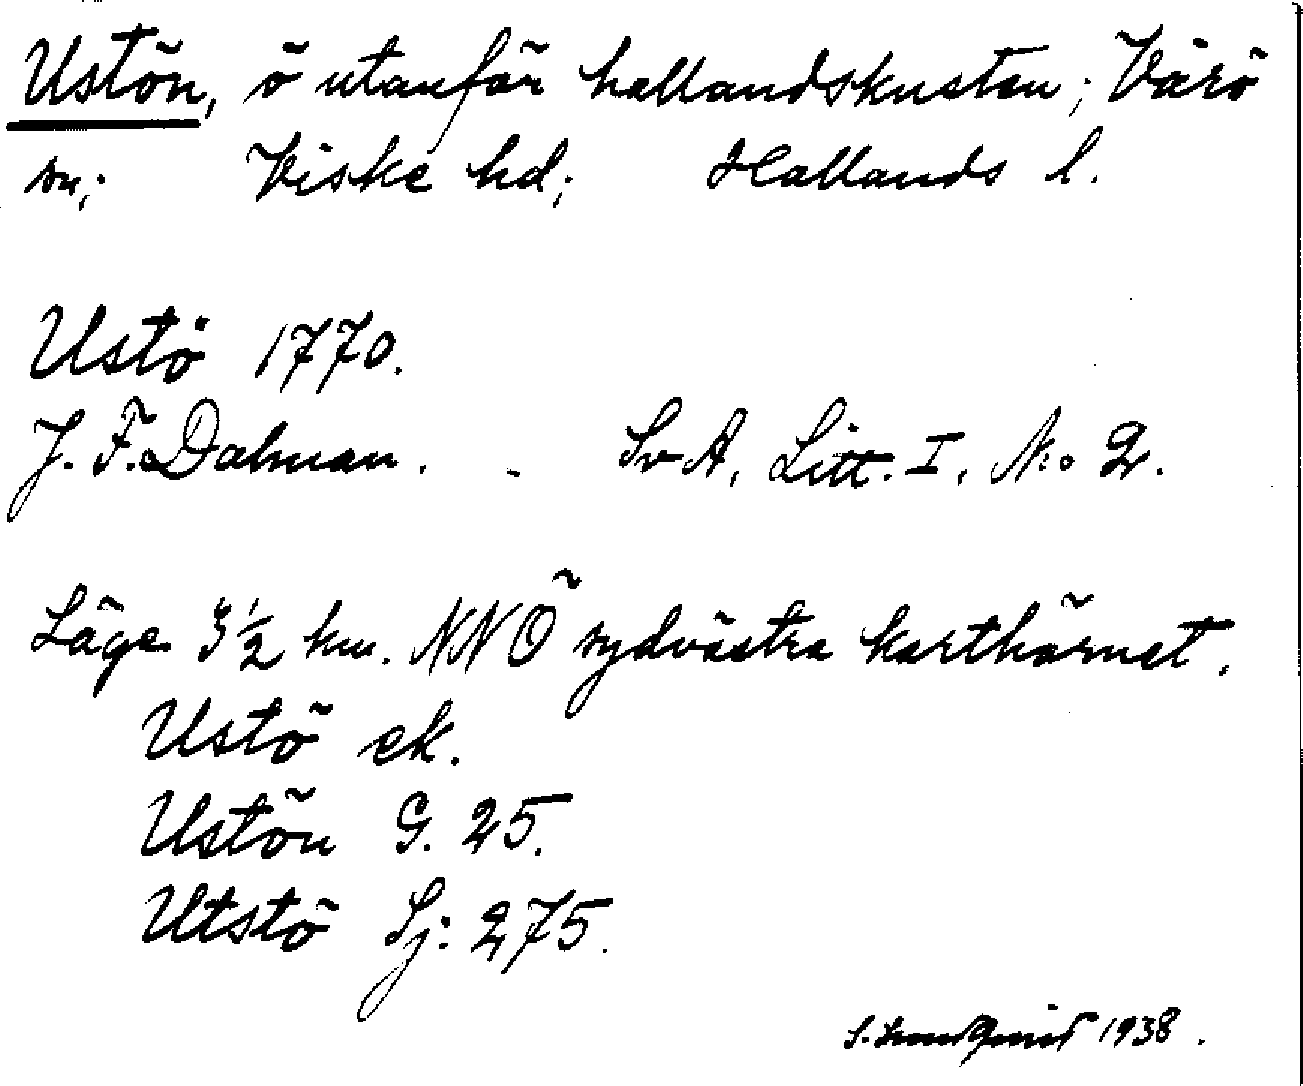 Ustön, ö utanför hallandskusten; Värö
sn; Viske hd; Hallands l.
Ustö 1770.
J. F. Dalman. - SvA, Litt. I, N:o 2.
Läge 3 1/2 km. NNÖ sydvästra karthörnet.
Ustö ek.
Ustön G. 25.
Utstö Sj: 275.
S. Lundqvist 1938.